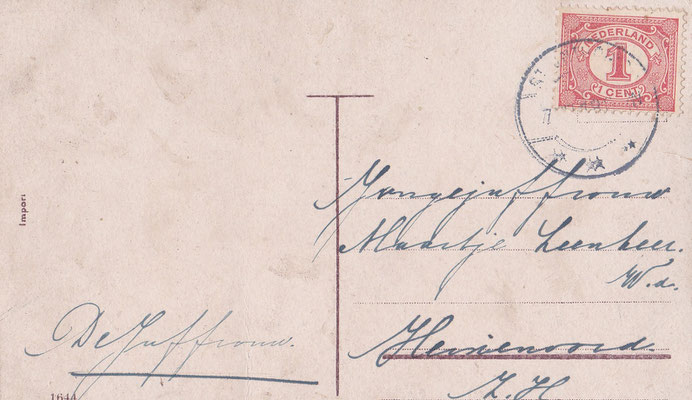 NEDERLAND
1
1 CENT
Jongejuffrouw
Maartje Leenheer.
W.d.
Heinenoord.
Z.H.
De Juffrouw.
Import
1644